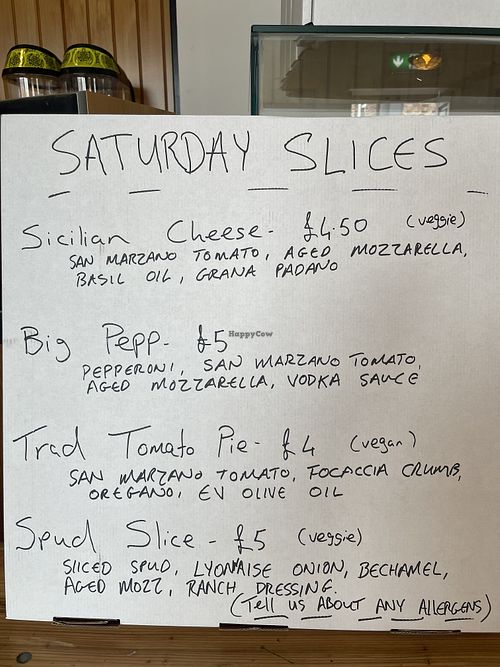 SATURDAY SLICES
Sicilian Cheese - £4.50 (veggie)
SAN MARZANO TOMATO, AGED MOZZARELLA,
BASIL OIL, GRANA PADANO
Big Pepp - £5
HappyCow
PEPPERONI, SAN MARZANO TOMATO,
AGED MOZZARELLA, VODKA SAUCE
Trad Tomato Pie - £4 (vegan)
SAN MARZANO TOMATO, FOCACCIA CRUMB,
OREGANO, EV OLIVE OIL
Spud Slice - £5 (veggie)
SLICED SPUD, LYONAISE ONION, BECHAMEL,
AGED MOZZ, RANCH DRESSING.
(TELL US ABOUT ANY ALLERGENS)